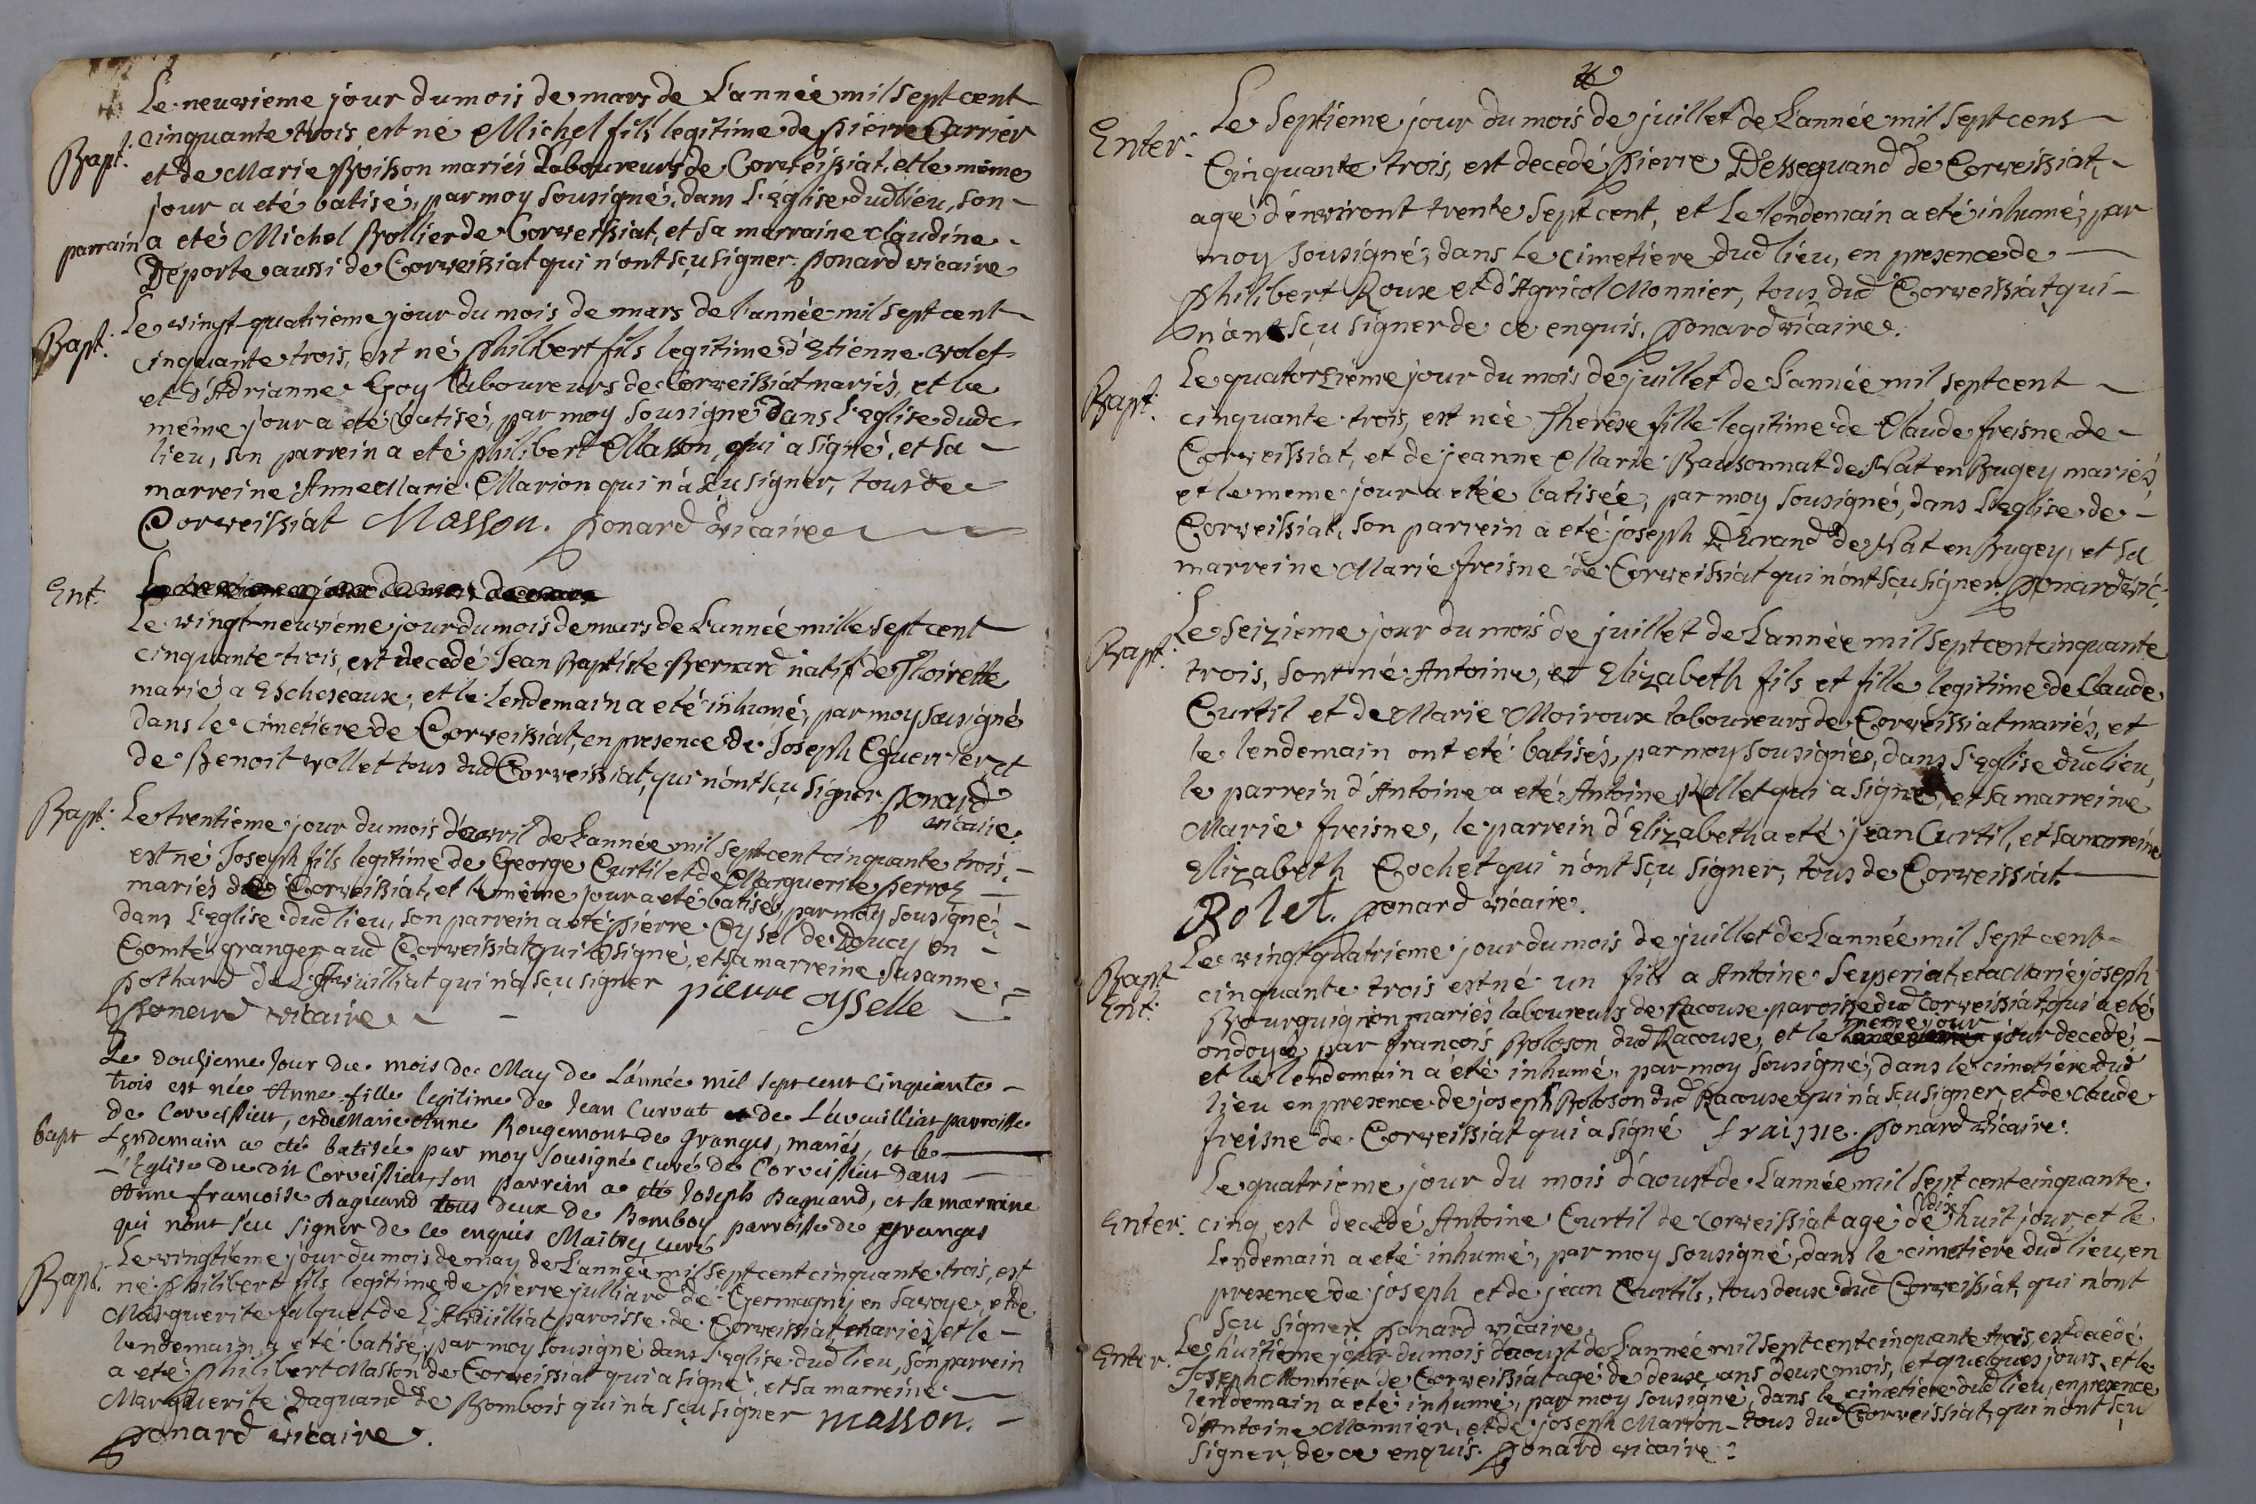 Le neuvieme jour du mois de mars de L'année mil sept cent
Bapt: cinquante trois est né Michel fils legitime de pierre Carrier
et de Marie Boisson mariés Laboureurs de Corveissiat, et le même
jour a eté batisé, par moy sousigné, dans L'Eglise dud lieu, son
parrain a eté Michel Rollier de Corveissiat, et sa marraine claudine
Deporte aussi de Corveissiat qui n'ont sçu signer. ponard vicaire
Bapt: Le vingt quatrieme jour du mois de mars de l'année mil sept cent
cinquante trois, est né philibert fils legitime d'Etienne
et d'Adrianne Goy laboureurs de Corveissiat mariés, et le
même jour a eté batisé, par moy sousigné dans L'eglise dud
lieu, son parrein a eté philibert Masson, qui a signé, et sa
marreine Anne Marie Marion qui n'a sçu signer, tous de
Corveissiat Masson. ponard vicaire
Ent:
Le vingt neuvieme jour du mois de mars de L'année mille sept cent
cinquante trois, est decedé Jean Baptiste Bernard natif de Thoirette
marié a Escheseaux, et le lendemain a eté inhumé, par moy sousigné
dans le cimetiere de Corveissiat, en presence de Joseph Guerrier, et
de Benoit vollet tous dud Corveissiat, qui n'ont sçu signer ponard
vicaire.
Bapt: Le trentieme jour du mois d'avril de L'année mil sept cent cinquante trois,
est né Joseph fils legitime de George Curtil et de Marguerite perroz
mariés dud Corveissiat, et le même jour a eté batisé, par moy sousigné,
dans L'Eglise dud lieu, son parrein a eté pierre Oysel de Doucy en
Comté granger aud Corveissiat qui a signé, et sa marreine Susanne
pothard de L'Avuilliat qui n'a sçu signer pierre oyselle
ponard vicaire
Le douzieme Jour du mois de May de L'année mil sept cent Cinquante
trois est née Anne fille legitime de Jean Curvat de L'avuilliat parroisse
de Corveissiat, et de Marie Anne Rougemont de granges, mariés, et le
bapt Lendemain a eté batisée par moy sousigné curé de Corveissiat dans
l'Eglise du dit Corveissiat, son parrein a eté Joseph Daguand, et sa marreine
Anne francoise Daguand tous deux de Bomboy parroisse de granges
qui n'ont sçu signer de ce enquis Maitrey curé
Bapt: Le vingtieme jour du mois de may de L'année mil sept cent cinquante trois, est
né philibert fils legitime de pierre julliard de Germagny en savoye, et de
Marguerite falquet de L'Avuilliat paroisse de Corveissiat, mariés, et le
lendemain a eté batisé, par moy sousigné dans L'eglise dud lieu, son parrein
a eté philibert Masson de Corveissiat qui a signé, et sa marreine
Marguerite Daguand de Bombois qui n'a sçu signer masson.
ponard vicaire.
Le Septieme jour du mois de juillet de L'année mil sept cens
Enter: Cinquante trois, est decedé pierre Dessequand de Corveissiat,
agé d'environt trente sept cent, et Le lendemain a eté inhumé, par
moy sousigné, dans Le cimetiere dud lieu, en presence de
philibert Roux et d'Agricol Monnier, tous dud Corveissiat qui
n'ont sçu signer de ce enquis. ponard vicaire.
Bapt: Le quatorzieme jour du mois de juillet de L'année mil sept cent
cinquante trois, est née Therese fille legitime de Claude freisne de
Corveissiat, et de jeanne Marie Bausonnat de Nat en Bugey mariés,
et le meme jour a etée batisée, par moy sousigné, dans L'eglise de
Corveissiat, son parrein a eté joseph Durand de Nat en Bugey, et sa
marreine Marie freisne de Corveissiat qui n'ont sçu signer. ponard vic:
Bapt: Le Seizieme jour du mois de juillet de L'année mil sept cent cinquante
trois, sont né Antoine, et Elizabeth fils et fille legitime de Claude
Curtil et de Marie Moiroux laboureurs de Corveissiat mariés, et
le lendemain ont eté batisés, par moy sousigné, dans L'eglise dud lieu,
le parrein d'Antoine a eté Antoine Rollet qui a signé, et sa marreine
Marie freisne, le parrein d'Elizabeth a eté jean Curtil, et sa marreine
Elizabeth Cochet qui n'ont sçu signer, tous de Corveissiat.
Rolet. ponard vicaire.
Le vingt quatrieme jour du mois de juillet de L'année mil sept cent
Bapt Ent: cinquante trois est né un fils a Antoine Seyseriat, et a Marie joseph
Bourguignon mariés laboureurs de Racouse paroisse dud Corveissiat, qui a eté
ondoyé par françois Roloson dud Racouse, et le meme jour jour decedé,
et le lendemain a eté inhumé, par moy sousigné, dans le cimetiere dud
lieu en presence de joseph Roloson dud Racouse qui n'a sçu signer et de Claude
freisne de Corveissiat qui a signé fraisne. ponard vicaire.
Le quatrieme jour du mois d'aoust de L'année mil sept cent cinquante
Enter: cinq, est decedé Antoine Curtil de Corveissiat agé de dix huit jour, et le
lendemain a eté inhumé, par moy sousigné, dans le cimetiere dud lieu, en
presence de joseph et de jean Curtils, tous deux dud Corveissiat, qui n'ont
sçu signer ponard vicaire.
Enter: Le huitieme jour du mois d'aoust de L'année mil sept cent cinquante trois, est decedé
Joseph Monnier de Corveissiat agé de deux ans deux mois, et quelques jours, et le
lendemain a eté inhumé, par moy sousigné, dans le cimetiere dud lieu, en presence
d'Antoine Monnier, et de joseph Marion tous dud Corveissiat, qui n'ont sçu
signer, de ce enquis. ponard vicaire: